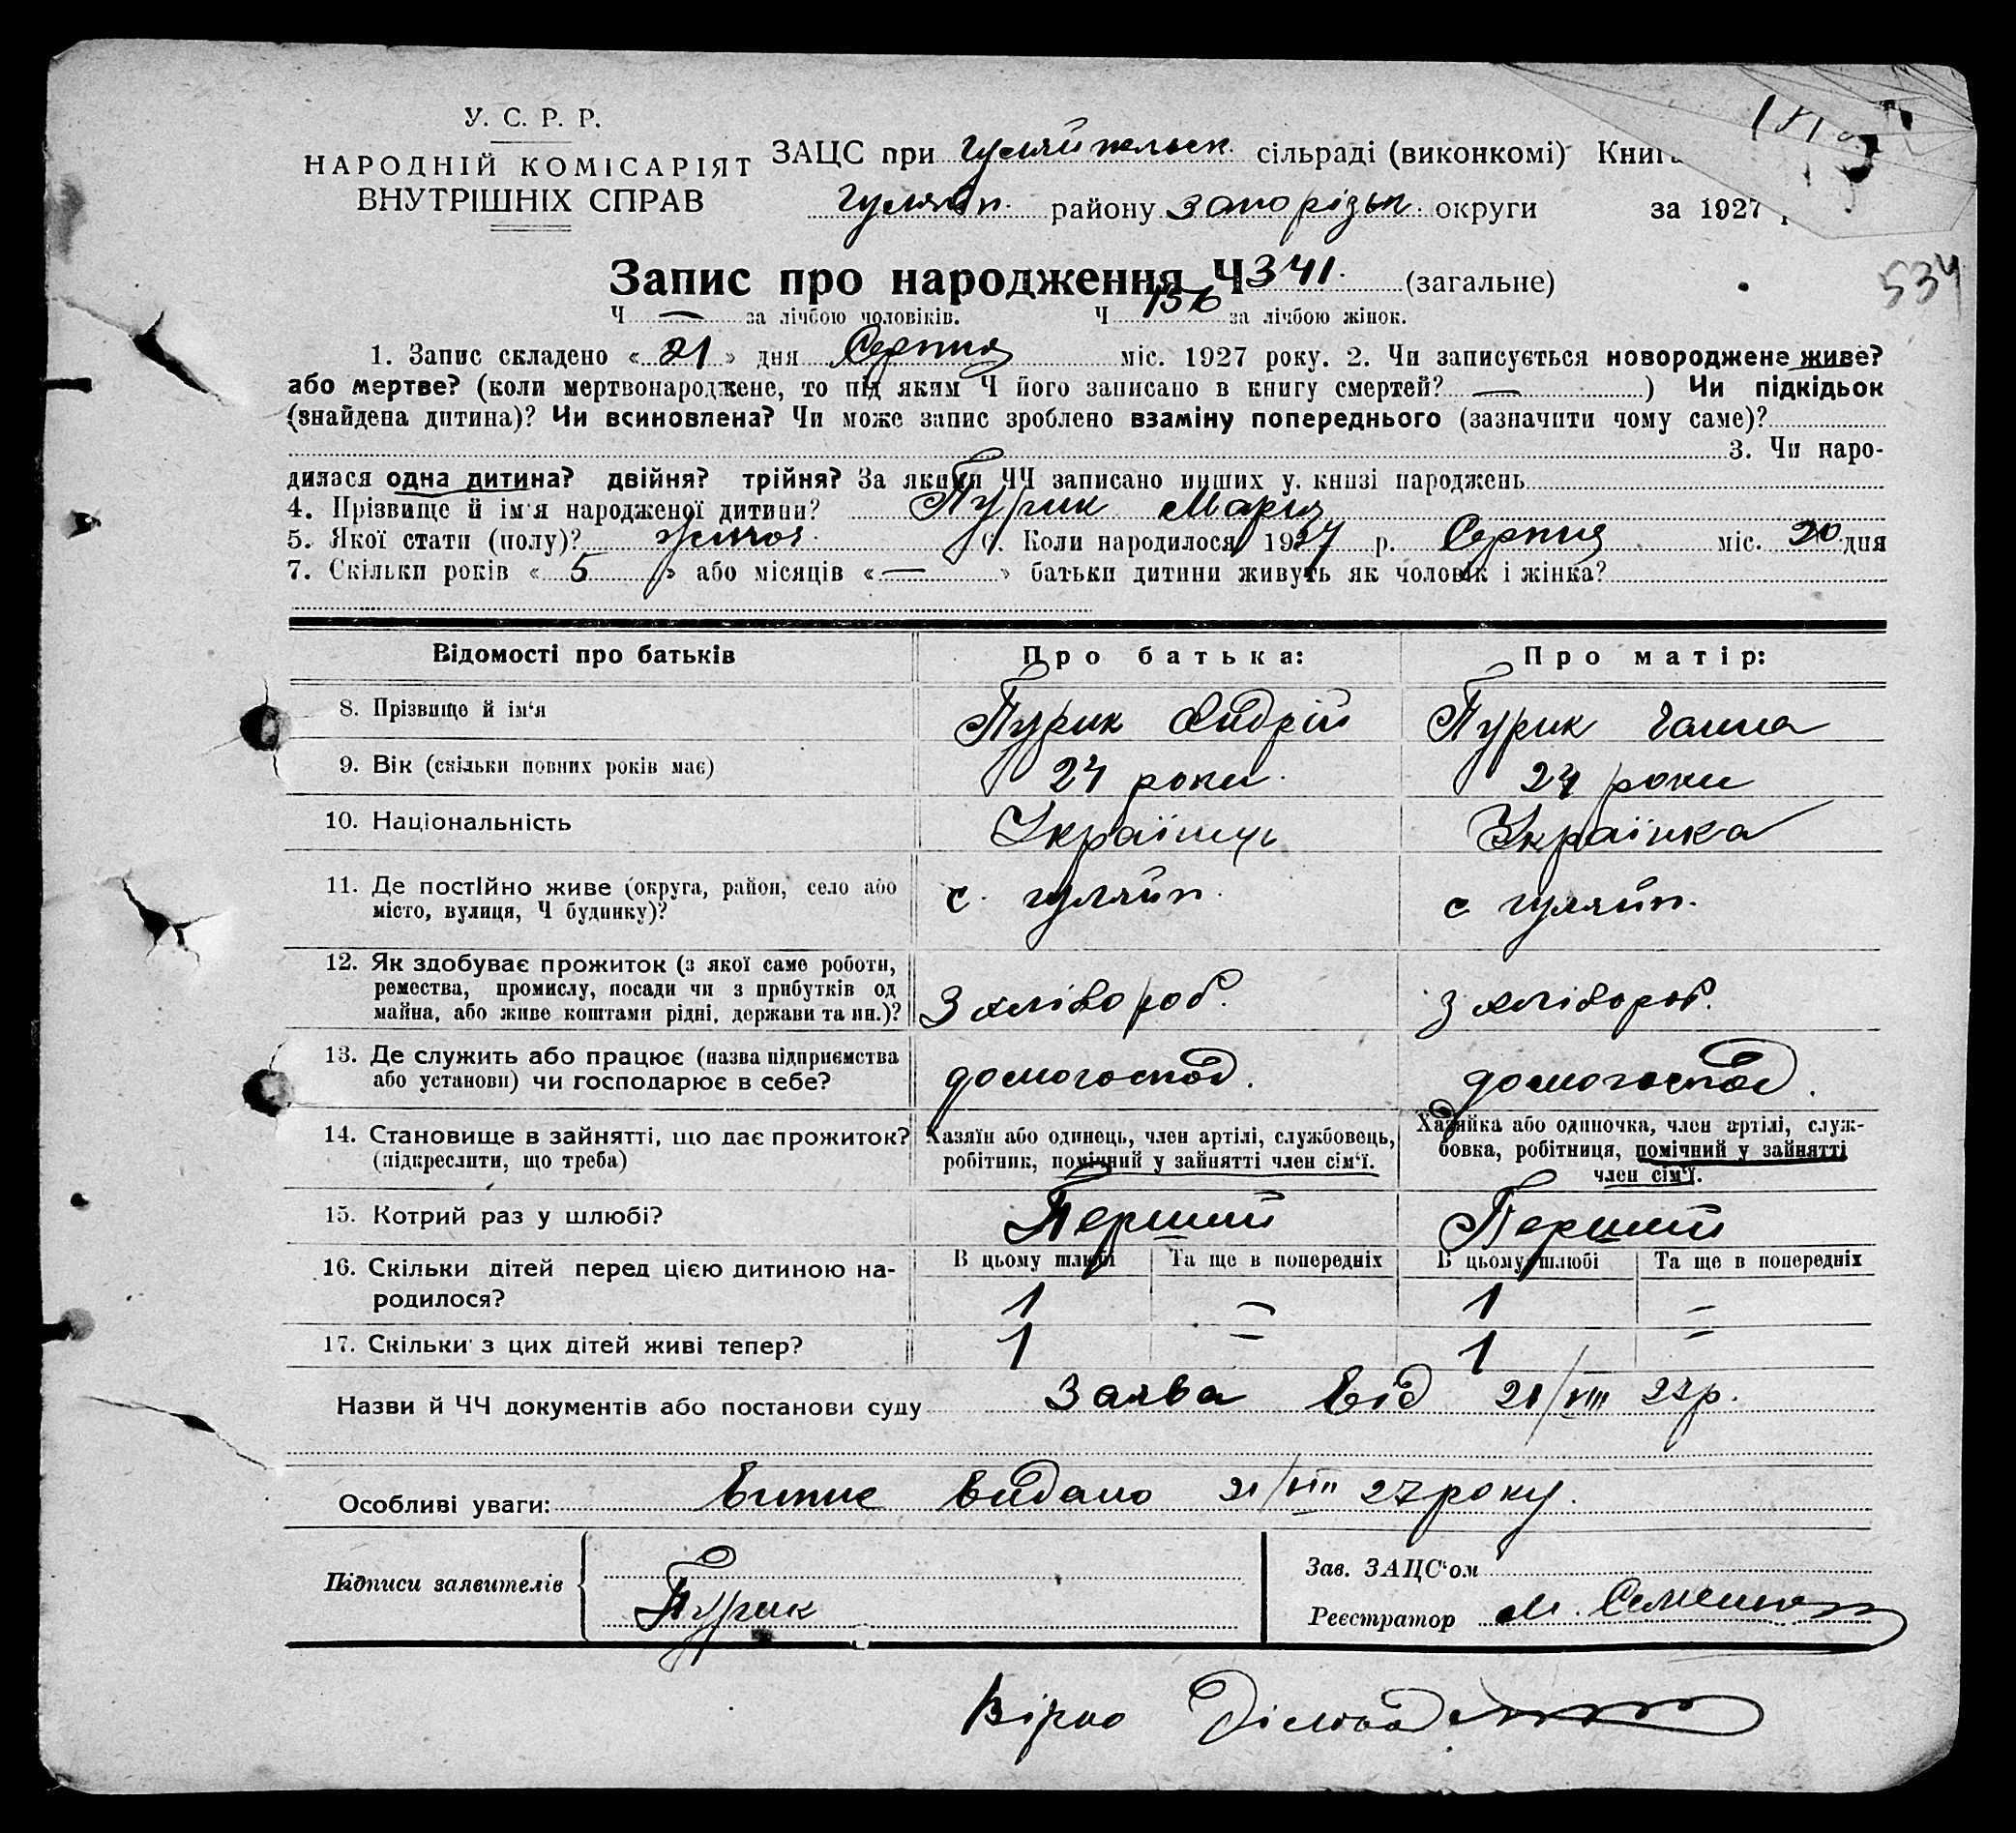 У. С. Р. Р.
НАРОДНІЙ КОМІСАРІЯТ
ВНУТРІШНІХ СПРАВ
ЗАЦС при Гуляйпільск. сільраді (виконкомі) Книга
Гуляйп. району Запорізьк. округи за 1927 р
534
Запис про народження Ч 341. (загальне)
Ч — за лічбою чоловіків. Ч 156 за лічбою жінок.
1. Запис складено « 21 » дня Серпня міс. 1927 року. 2. Чи записується новороджене живе?
або мертве? (коли мертвонароджене, то під яким Ч його записано в книгу смертей? — ) Чи підкідьок
(знайдена дитина)? Чи всиновлена? Чи може запис зроблено взаміну попереднього (зазначити чому саме)?
3. Чи наро-
дилася одна дитина? двійня? трійня? За якими ЧЧ записано инших у книзі народжень
4. Прізвище й ім'я народженої дитини? Пурик Мария
5. Якої стати (полу)? жіноч. 6. Коли народилося 1927 р. Серпня міс. 20 дня
7. Скільки років « 5 » або місяців « — » батьки дитини живуть як чоловік і жінка?
Відомості про батьків Про батька: Про матір:
8. Прізвище й ім'я Пурик Андрій Пурик Ганна
9. Вік (скільки повних років має) 24 роки 24 роки
10. Національність Українець Українка
11. Де постійно живе (округа, район, село або
місто, вулиця, Ч будинку)? с. Гуляйп. с. Гуляйп.
12. Як здобуває прожиток (з якої саме роботи,
ремества, промислу, посади чи з прибутків од
майна, або живе коштами рідні, держави та ин.)? З хлібороб. З хлібороб.
13. Де служить або працює (назва підприємства
або установи) чи господарює в себе? домогоспод. домогоспод.
14. Становище в зайнятті, що дає прожиток?
(підкреслити, що треба)
Хазяїн або одинець, член артілі, службовець,
робітник, помічний у зайнятті член сім'ї.
Хазяйка або одиночка, член артілі, служ-
бовка, робітниця, помічний у зайнятті
член сім'ї.
15. Котрий раз у шлюбі? Перший Перший
16. Скільки дітей перед цією дитиною на-
родилося?
В цьому шлюбі Та ще в попередніх В цьому шлюбі Та ще в попередніх
1 — 1 —
17. Скільки з цих дітей живі тепер? 1 — 1 —
Назви й ЧЧ документів або постанови суду Заява від 21/VIII 27 р.
Особливі уваги: Випис видано 21/VIII 27 року.
Підписи заявителів Пурик
Зав. ЗАЦС'ом
Реєстратор М.
Вірно Діловод